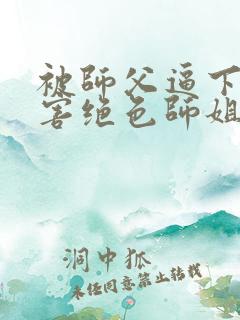 被師父逼下
害绝色師姐
洞中狐
未经同意禁止转载